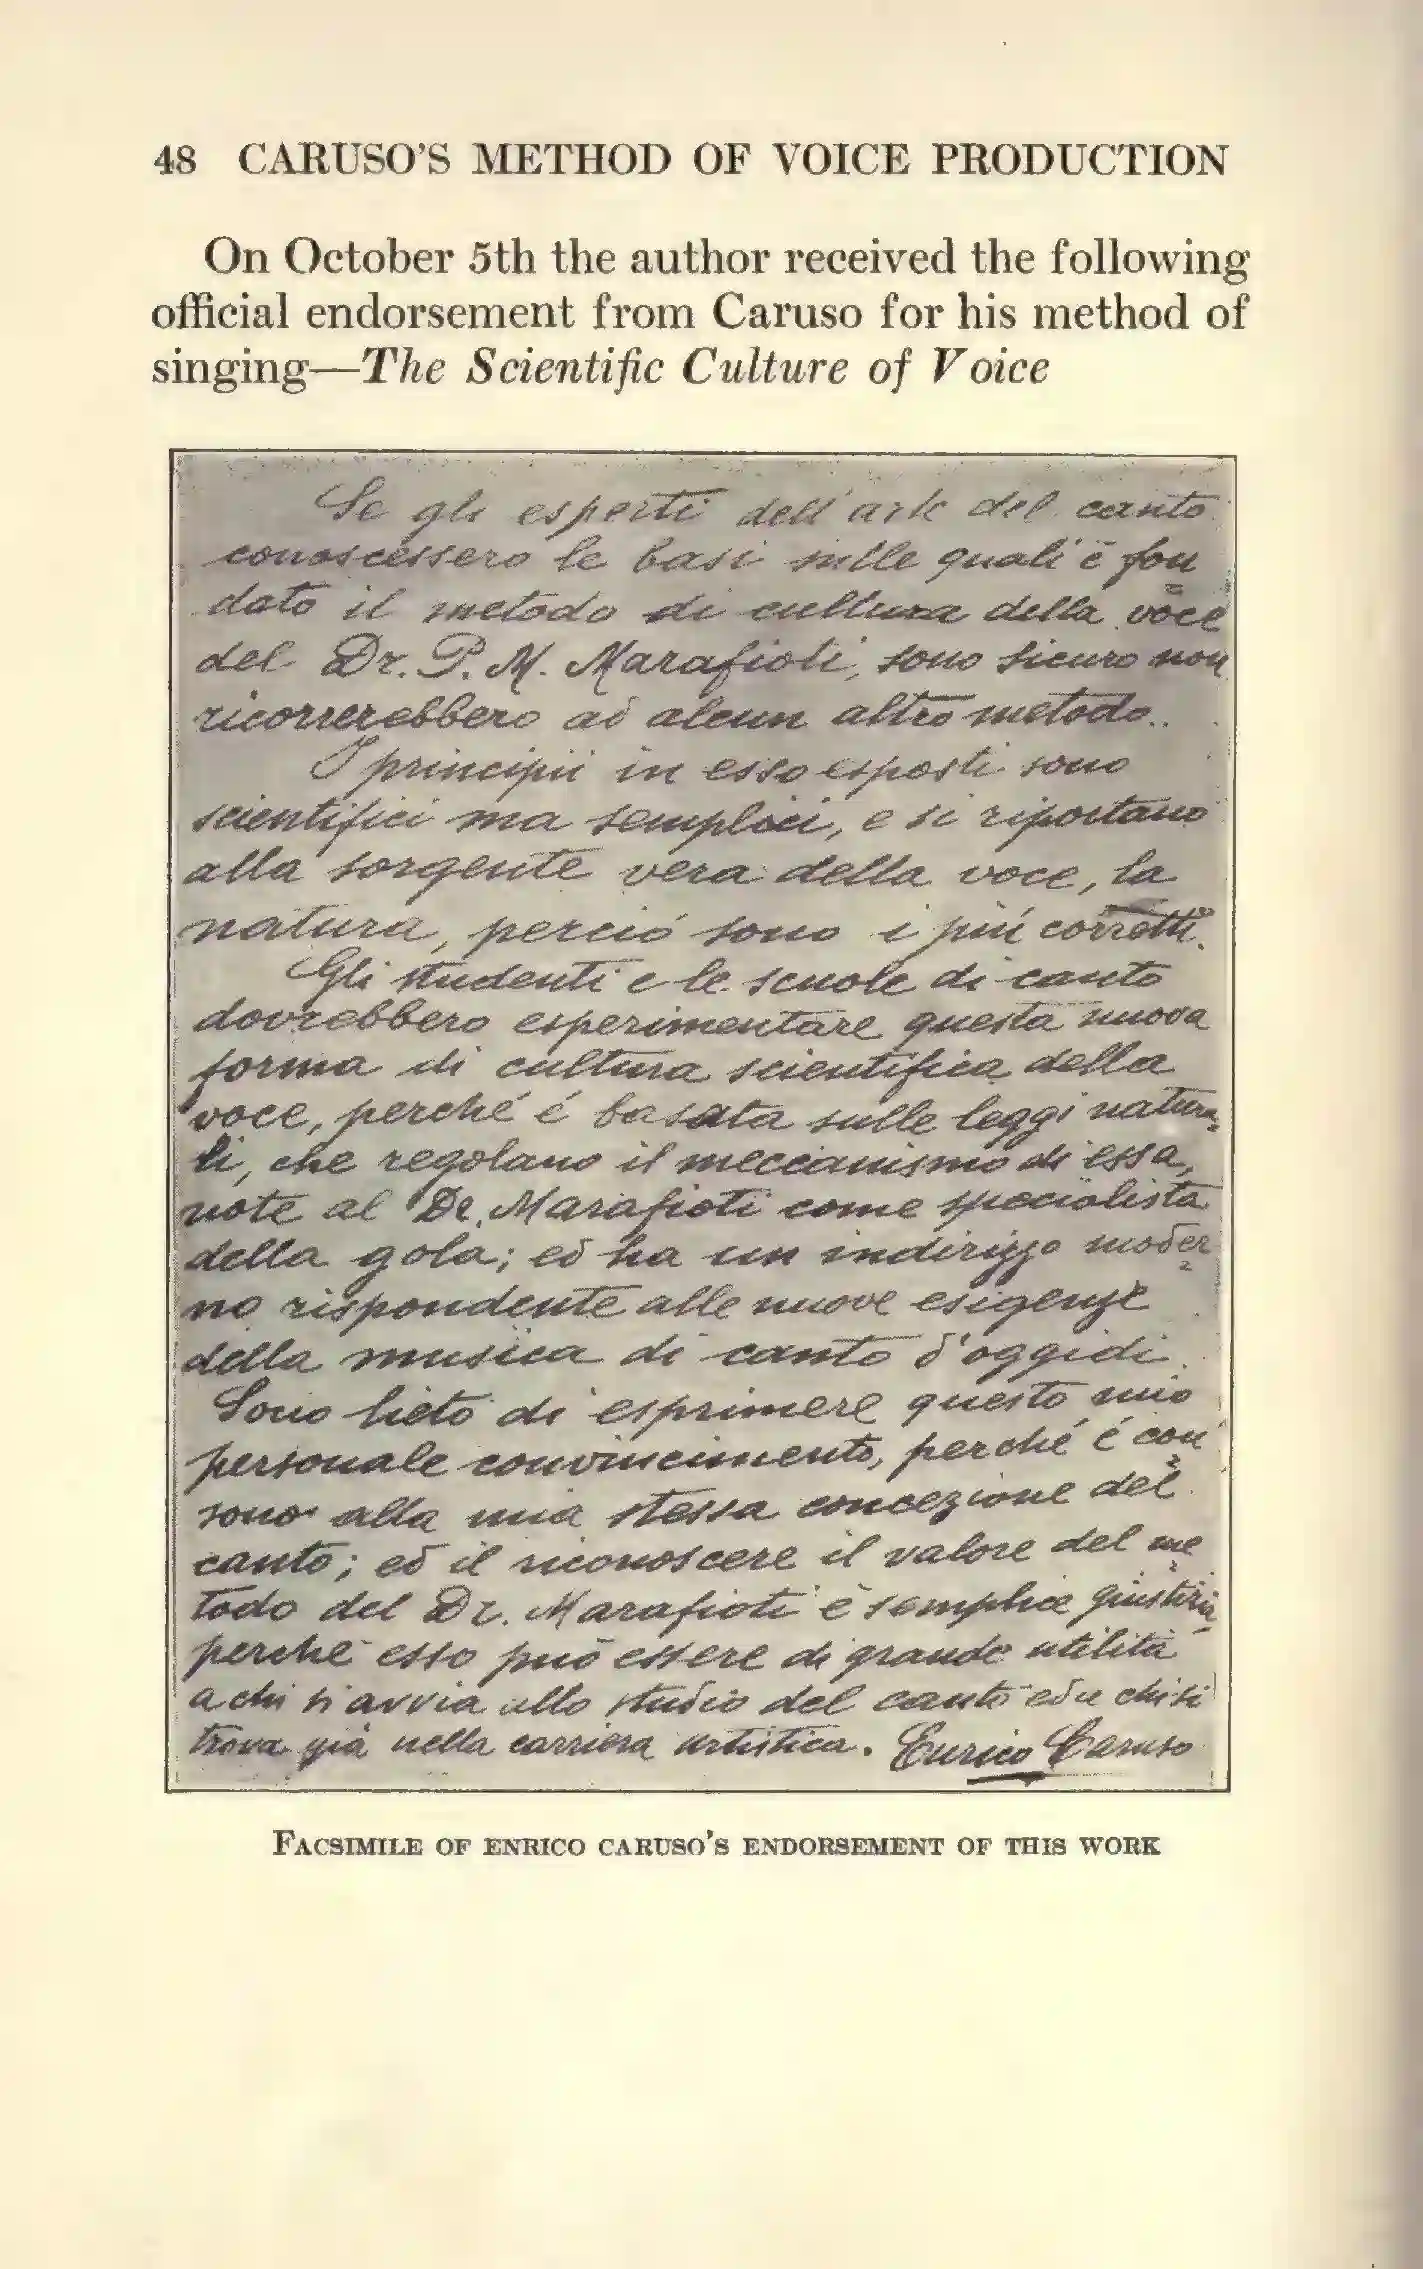 48 CARUSO'S METHOD OF VOICE PRODUCTION
On October 5th the author received the following
official endorsement from Caruso for his method of
singing—The Scientific Culture of Voice
Se gli esperti dell'arte del canto
conoscessero le basi sulle quali è fon
dato il metodo di cultura della voce
del Dr. P. M. Marafioti, sono sicuro non
ricorrerebbero ad alcun altro metodo.
I principii in esso esposti sono
scientifici ma semplici, e si riportano
alla sorgente vera della voce, la
natura, perció sono i piú corretti.
Gli studenti e le scuole di canto
dovrebbero esperimentare questa nuova
forma di cultura scientifica della
voce, perché é basata sulle leggi natura=
li, che regolano il meccanismo di essa,
note al Dr. Marafioti come specialista
della gola; ed ha un indirizzo moder=
no rispondente alle nuove esigenze
della musica di canto d'oggidi.
Sono lieto di esprimere questo mio
personale convincimento, perché é con=
sono alla mia stessa concezione del
canto; ed il riconoscere il valore del me=
todo del Dr. Marafioti è semplice giustizia
perchè esso può essere di grande utilità
a chi s'avvia allo studio del canto ed a chi si
trova già nella carriera artistica. Enrico Caruso
FACSIMILE OF ENRICO CARUSO'S ENDORSEMENT OF THIS WORK